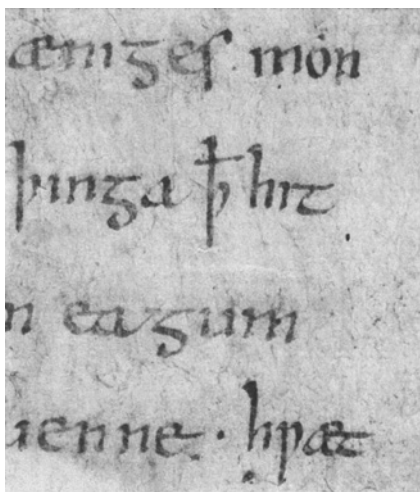 æniges món
þinga ꝥ hit
n eagum
ienne · hƿæt